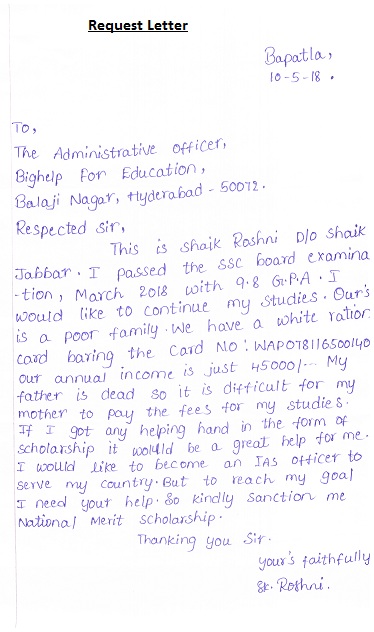 Request Letter
Bapatla,
10-5-18.
To,
The Administrative officer,
Bighelp For Education,
Balaji Nagar, Hyderabad - 50072.
Respected Sir,
This is Shaik Roshni D/o Shaik
Jabbar. I passed the ssc board examina
-tion, March 2018 with 9.8 G.P.A. I
would like to continue my studies. Our's
is a poor family. We have a white ration
card baring the Card No: WAP078116500140
our annual income is just 45000/--- My
father is dead so it is difficult for my
mother to pay the fees for my studies.
If I got any helping hand in the form of
scholarship it would be a great help for me.
I would like to become an IAS officer to
serve my country. But to reach my goal
I need your help. So kindly sanction me
National Merit scholarship.
Thanking you Sir.
your's faithfully
Sk. Roshni.